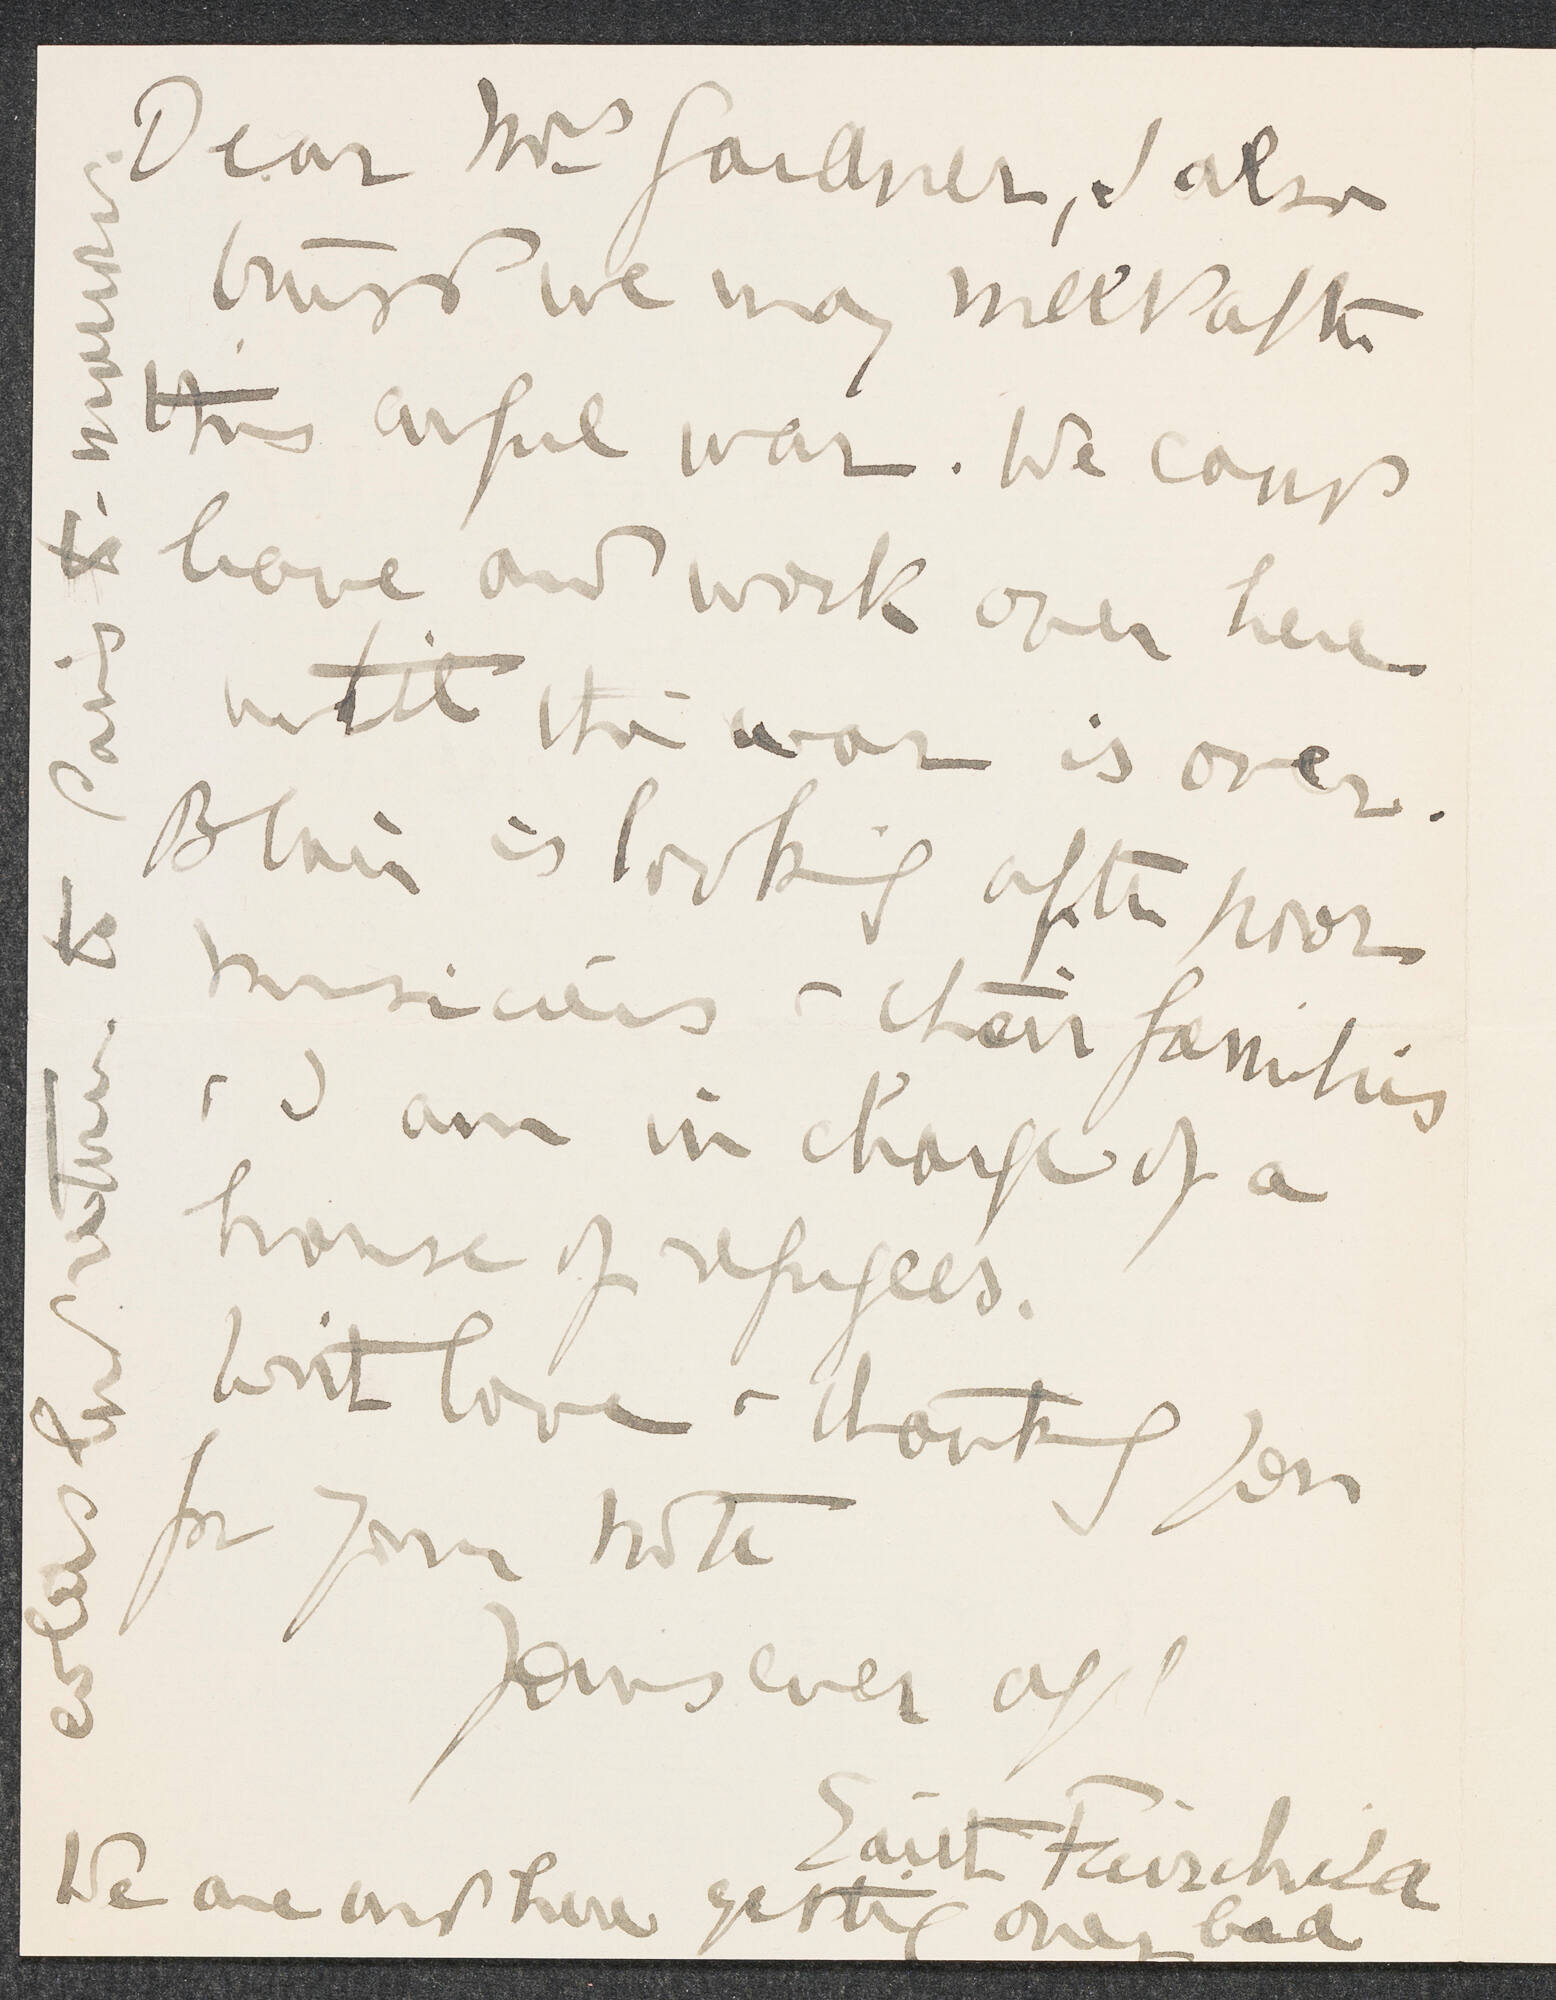 Dear Mrs Gardner, I also
trust we may meet after
this awful war. We cant
leave and work over here
until the war is over.
Blair is looking after poor
musicians & their families
& I am in charge of a
house of refugees.
With love & thanking you
for your note
Yours ever aff
Edith Fairchild
We are out here getting over bad
colds but return to Paris to-morrow.